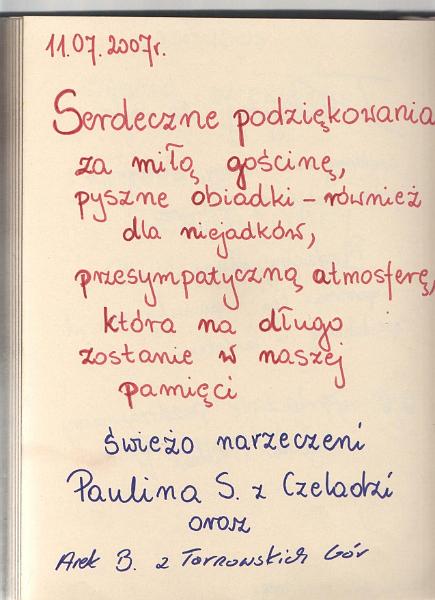 11.07.2007r.
Serdeczne podziękowania
za miłą gościnę,
pyszne obiadki - również
dla niejadków,
przesympatyczną atmosferę,
która na długo
zostanie w naszej
pamięci
świeżo narzeczeni
Paulina S. z Czeladzi
oraz
Arek B. z Tarnowskich Gór